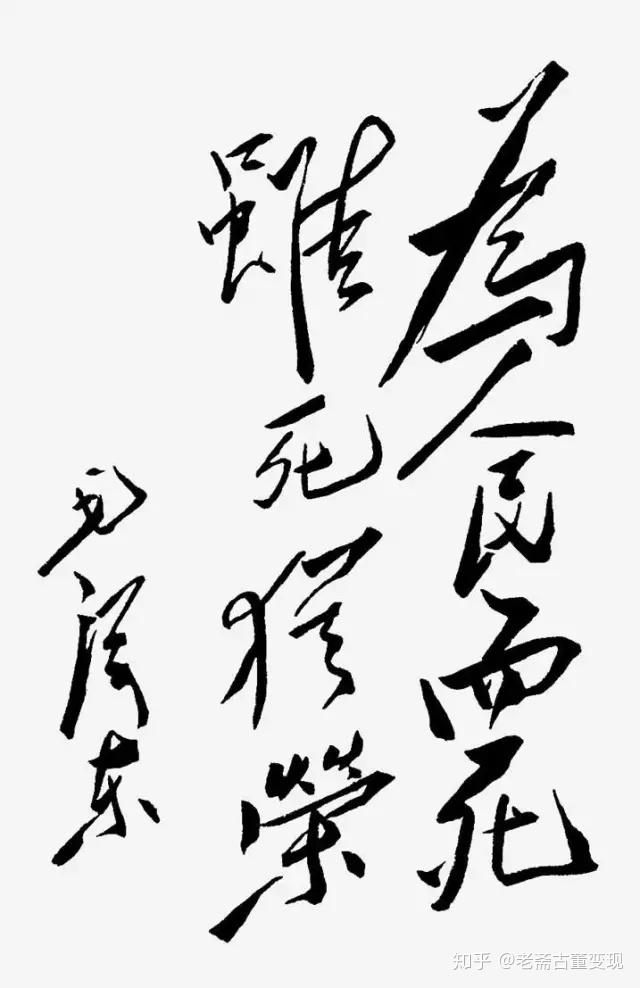 為人民而死
雖死猶榮
毛澤东
知乎 @老斋古董变现